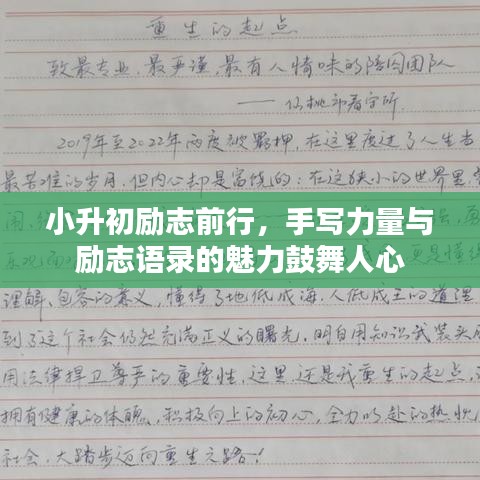 重生的起点
致最专业、最严谨,最有人情味的陪同团队
——仙桃市看守所
2019年至2022年两度被羁押,在这里度过了人生当
最苦难的岁月,但内心却是富饶的:在这狭小的世界里
小升初励志前行,手写力量与
励志语录的魅力鼓舞人心
理解、包容的意义,懂得了地低成海、人低成王的道理
到了这个社会仍然充满正义的曙光,明白用知识武装头
用法律捍卫尊严的重要性,这里还是我重生的起点,
拥有健康的体魄、积极向上的初心,全力以赴的热忱
社会,大踏步迈向重生之路!